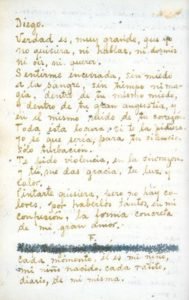 Diego.
Verdad es, muy grande, que yo
no quisiera, ni hablar, ni dormir
ni oír, ni querer.
Sentirme encerrada, sin miedo
a la sangre, sin tiempo ni ma-
gia, dentro de tu mismo miedo
y dentro de tu gran angustia, y
en el mismo ruido de tu corazón.
Toda esta locura, si te la pidiera
yo sé que sería, para tu silencio
sólo turbación.
Te pido violencia, en la sinrazón
y tú, me das gracia, tu luz y
calor.
Pintarte quisiera, pero no hay co-
lores, por haberlos tantos, en mi
confusión, la forma concreta
de mi gran amor.
F.
Cada momento, él es mi niño,
mi niño nacido, cada ratito,
diario, de mi misma.